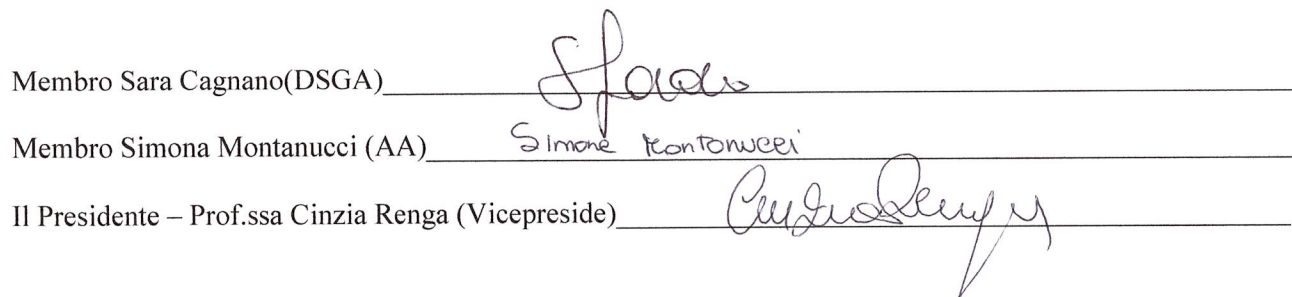 Membro Sara Cagnano(DSGA)
Membro Simona Montanucci (AA) Simona Montanucci
Il Presidente – Prof.ssa Cinzia Renga (Vicepreside)